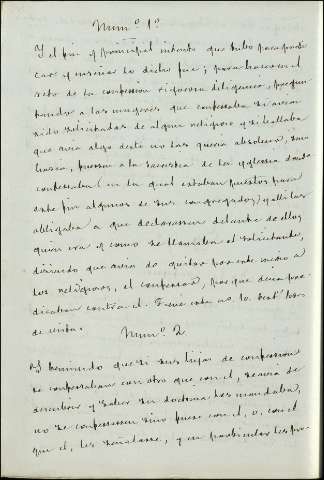 Num.º 1º
Y el fin y principal intento que tubo para predi
car y enseñar lo dicho fue; para hacer en el
acto de la confesion rigurosa diligencia, pregun
tando a las mugeres que confesaba si avian
sido solicitadas de algun religioso y si hallaba
que avia algo desto no las queria absolver, sino
hacia, fuesen a la sacristia de la yglesia donde
confesaba (en la qual estaban puestos para
este fin algunos de sus congregados) y alli las
obligaba a que declarassen delante de ellos
quien era y como se llamaba el solicitante,
diciendo que avia de quitar por este medio a
los religiosos, el confesar, porque decia pre
dicaban contra el. Tiene esta no. 10 test.os
de vista.
Num.º 2
Y temiendo que si sus hijas de confession
se confessaban con otro que con el, se avia de
descubrir y saber su doctrina les mandaba,
no se confessassen sino fuese con el, o, con el
que el, les señalasse, y en particular les pro